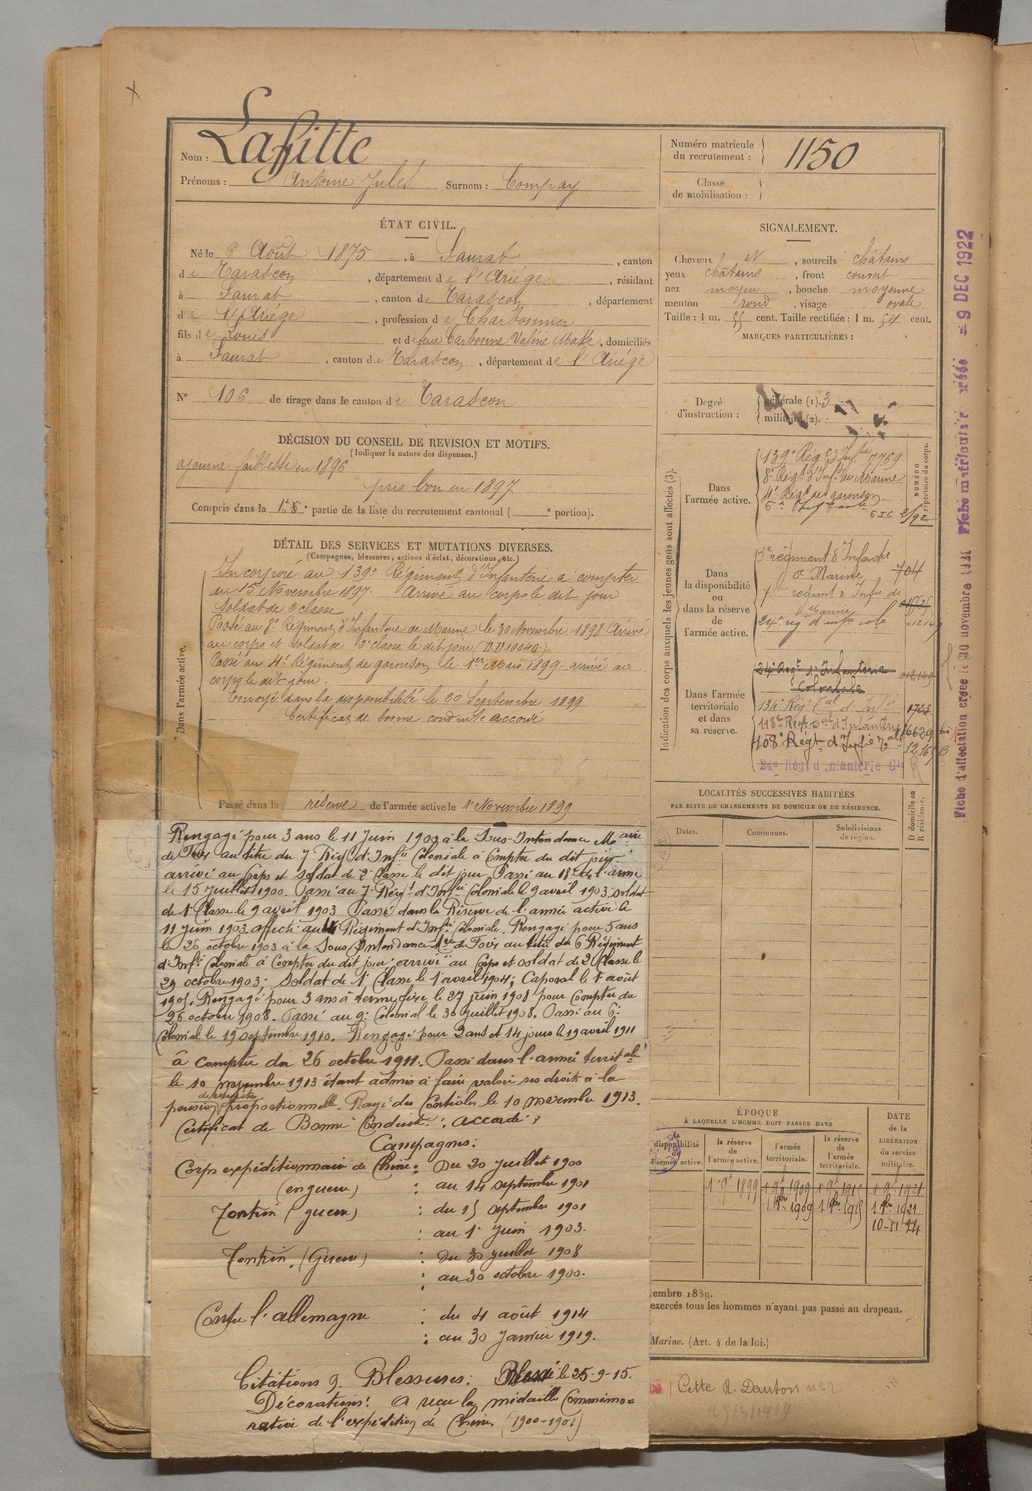 Nom : Lafitte
Prénoms : Antoine Jules Surnom : Compay
Numéro matricule du recrutement : 1150
Classe de mobilisation :
ÉTAT CIVIL.
Né le 6 Août 1875, à Saurat, canton
de Tarascon, département de l'Ariége, résidant
à Saurat, canton de Tarascon, département
de l'Ariége, profession de Charbonnier
fils de Louis et de feue Carbonne Valérie, domiciliés
à Saurat, canton de Tarascon, département de l'Ariége
N° 106 de tirage dans le canton de Tarascon
SIGNALEMENT.
Cheveux et, sourcils châtains
yeux châtains, front couvert
nez moyen, bouche moyenne
menton rond, visage ovale
Taille : 1 m. cent. Taille rectifiée : 1 m. 54 cent.
MARQUES PARTICULIÈRES :
Degré d'instruction : générale (1). 3
militaire (2).
DÉCISION DU CONSEIL DE REVISION ET MOTIFS.
(Indiquer la nature des dispenses.)
ajourné faiblesse en 1896
pris bon en 1897
Compris dans la partie de la liste du recrutement cantonal ( portion).
DÉTAIL DES SERVICES ET MUTATIONS DIVERSES.
(Campagnes, blessures, actions d'éclat, décorations, etc.)
Dans l'armée active.
Incorporé au 139e Régiment d'Infanterie à compter
du 15 Novembre 1897. Arrivé au corps le dit jour
Soldat de 2 classe
Passé au 8e Régiment d'Infanterie de Marine le 30 Novembre 1898 Arrivé
au corps et soldat de 2e classe le dit jour
Passé au 4e Régiment de le 1er Mars 1899. arrivé au
corps le dit jour.
Envoyé dans la disponibilité le 20 Septembre 1899
Certificat de bonne conduite accordé
Passé dans la réserve de l'armée active le 1 Novembre 1899
Rengagé pour 3 ans le 11 Juin 1900 à la Sous-Intendance Mre
de Foix au titre du 7 Régt d'Infie Coloniale à Compter du dit jour
arrivé au Corps et soldat de 2e Classe le dit jour Passé au de l'arme
le 15 juillet 1900. Passé au 7e Régt d'Infie Coloniale le 9 avril 1903 soldat
de 1e Classe le 9 avril 1903 Passé dans la Réserve de l'armée active le
11 juin 1903 affecté au Régiment d'Infie Coloniale. Rengagé pour 5 ans
le 26 octobre 1903 à la Sous Intendance de Foix au titre du 6 Régiment
d'Infie Coloniale à Compter du dit jour; arrivé au Corps et soldat de 2 Classe le
29 octobre 1903; Soldat de 1e Classe le 1er avril 1904; Caporal le août
Rengagé pour 3 ans à terme fixe le 27 juin 1908 pour Compter du
26 octobre 1908. Passé au 9e Colonial le 30 juillet 1908. Passé au 6e
Colonial le 19 septembre 1910. Rengagé pour 2 ans et 14 jours le 19 avril 1911
à Compter du 26 octobre 1911. Passé dans l'armée territale
le 10 novembre 1913 étant admis à faire valoir ses droits à la
pension de retraite proportionnelle. Rayé des Contrôles le 10 novembre 1913.
Certificat de Bonne Conduite : accordé
Campagnes :
Corps expéditionnaire de Chine : Du 20 juillet 1900
(en guerre) : au 14 septembre 1901
Tonkin (guerre) : du 15 septembre 1901
: au 1er juin 1903.
Tonkin. (Guerre) : Du 30 juillet 1908
: au 30 octobre 1900.
Contre l'allemagne : du 4 août 1914
: au 30 Janvier 1919.
Citations & Blessures : Blessé le 25-9-15.
Décorations : A reçu la médaille Commémo=
rative de l'expédition de Chine. (1900-1901)
Indication des corps auxquels les jeunes gens sont affectés (3).
NUMÉRO au répertoire du corps.
Dans l'armée active.
139e Régt d'Infie 7769
8e Régt d'Infie de Marine
Dans la disponibilité ou dans la réserve de l'armée active.
régiment d'Infanterie
de Marine 704
24e rég d'infie cole
Dans l'armée territoriale et dans sa réserve.
24e Régt d'Infanterie
Coloniale
134e Régt d'Infie
118e Régt d'Infanterie 6629 bis
108e Régt d'Infie
24e Régt d'Infanterie Cle
LOCALITÉS SUCCESSIVES HABITÉES
PAR SUITE DE CHANGEMENTS DE DOMICILE OU DE RÉSIDENCE.
Dates. Communes. Subdivisions de région. D domicile ou R résidence.
ÉPOQUE
À LAQUELLE L'HOMME DOIT PASSER DANS
disponibilité l'armée active. la réserve de l'armée active. l'armée territoriale. la réserve de l'armée territoriale.
DATE de la LIBÉRATION du service militaire.
1 9bre 1899 1 9bre 1909 1 9bre 1921
1 9bre 1909 1 9bre 1915 1 9bre 1921
10-11
embre 1889.
exercés tous les hommes n'ayant pas passé au drapeau.
Marine. (Art. 4 de la loi.)
Cette R. Danton n° 2
29/3/1919
Fiche d'affectation créée le 30 novembre 1921 Fiche matriculaire créée = 9 DEC 1922